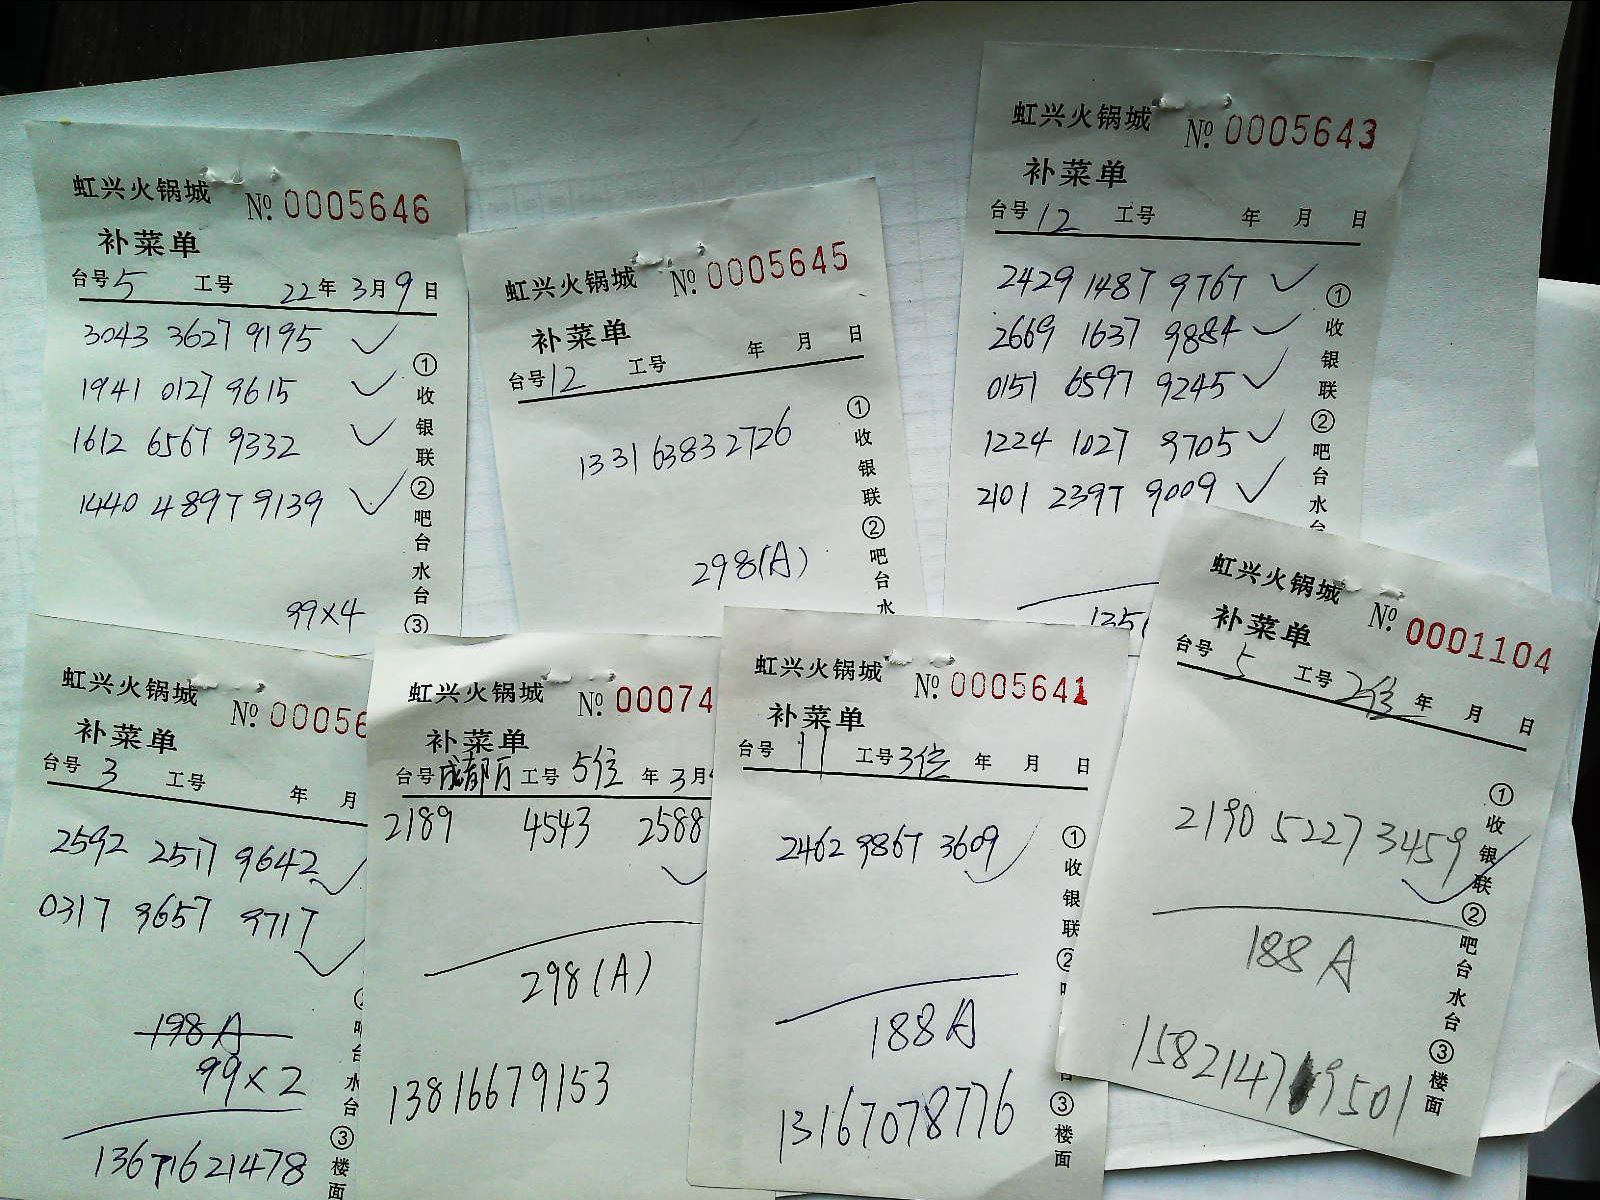 虹兴火锅城 No. 0005646
补菜单
台号 5 工号 22年 3月 9日
3043 3627 9195 ✓
1941 0127 9615 ✓
1612 6567 9332 ✓
1440 4897 9139 ✓
99×4
①收银联②吧台水台③
虹兴火锅城 No. 0005645
补菜单
台号 12 工号 年 月 日
133163832726
298(A)
①收银联②吧台水
虹兴火锅城 No. 0005643
补菜单
台号 12 工号 年 月 日
2429 1487 9767 ✓
2669 1637 9884 ✓
0151 6597 9245 ✓
1224 1027 9705 ✓
2101 2397 9009 ✓
1356
①收银联②吧台水台
虹兴火锅城 No. 00056
补菜单
台号 3 工号 年 月
2592 2517 9642 ✓
0317 9657 9717 ✓
198A
99×2
13671621478
吧台水台③楼面
虹兴火锅城 No. 00074
补菜单
台号 成都厅 工号 5位 年 3月
2189 4543 2588 ✓
298(A)
13816679153
虹兴火锅城 No. 0005641
补菜单
台号 11 工号 3位 年 月 日
2462 9867 3609 ✓
188A
13167078776
①收银联②台③楼面
虹兴火锅城 No. 0001104
补菜单
台号 5 工号 2位 年 月 日
2190 5227 3459 ✓
188A
15821479501
①收银联②吧台水台③楼面